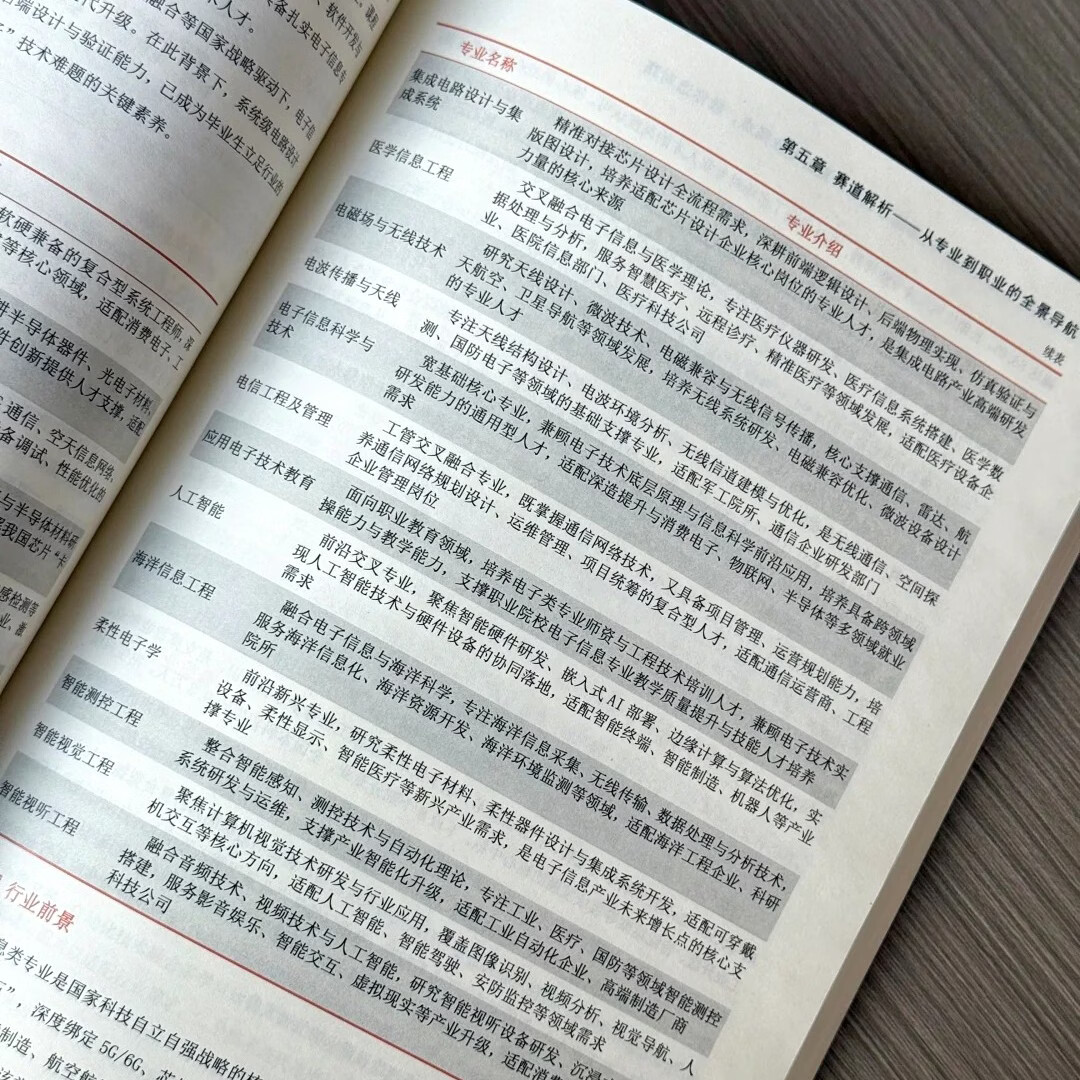 代升级。在此背景下，系统级电路设计
融合等国家战略驱动下，电子信
端设计与验证能力，已成为毕业生立足行业的
”技术难题的关键素养。
软硬兼备的复合型系统工程师，深
等核心领域，适配消费电子、工
半导体器件、光电子材料，
件创新提供人才支撑，适配
通信，空天信息网络，
备调试、性能优化的
与半导体材料研
我国芯片“卡
感检测等
第五章 赛道解析——从专业到职业的全景导航
续表
专业名称
专业介绍
集成电路设计与集
成系统
精准对接芯片设计全流程需求，深耕前端逻辑设计、后端物理实现、仿真验证与
版图设计，培养适配芯片设计企业核心岗位的专业人才，是集成电路产业高端研发
力量的核心来源
医学信息工程
交叉融合电子信息与医学理论，专注医疗仪器研发、医疗信息系统搭建、医学数
据处理与分析，服务智慧医疗、远程诊疗、精准医疗等领域发展，适配医疗设备企
业、医院信息部门、医疗科技公司
电磁场与无线技术
研究天线设计、微波技术、电磁兼容与无线信号传播，核心支撑通信、雷达、航
天航空、卫星导航等领域发展，培养无线系统研发、电磁兼容优化、微波设备设计
的专业人才
电波传播与天线
专注天线结构设计、电波环境分析、无线信道建模与优化，是无线通信、空间探
测、国防电子等领域的基础支撑专业，适配军工院所、通信企业研发部门
电子信息科学与
技术
宽基础核心专业，兼顾电子技术底层原理与信息科学前沿应用，培养具备跨领域
研发能力的通用型人才，适配深造提升与消费电子、物联网、半导体等多领域就业
需求
电信工程及管理
工管交叉融合专业，既掌握通信网络技术，又具备项目管理、运营规划能力，培
养通信网络规划设计、运维管理、项目统筹的复合型人才，适配通信运营商、工程
企业管理岗位
应用电子技术教育
面向职业教育领域，培养电子类专业师资与工程技术培训人才，兼顾电子技术实
操能力与教学能力，支撑职业院校电子信息专业教学质量提升与技能人才培养
人工智能
前沿交叉专业，聚焦智能硬件研发、嵌入式 AI 部署、边缘计算与算法优化，实
现人工智能技术与硬件设备的协同落地，适配智能终端、智能制造、机器人等产业
需求
海洋信息工程
融合电子信息与海洋科学，专注海洋信息采集、无线传输、数据处理与分析技术，
服务海洋信息化、海洋资源开发、海洋环境监测等领域，适配海洋工程企业、科研
院所
柔性电子学
前沿新兴专业，研究柔性电子材料、柔性器件设计与集成系统开发，适配可穿戴
设备、柔性显示、智能医疗等新兴产业需求，是电子信息产业未来增长点的核心支
撑专业
智能测控工程
整合智能感知、测控技术与自动化理论，专注工业、医疗、国防等领域智能测控
系统研发与运维，支撑产业智能化升级，适配工业自动化企业、高端制造厂商
智能视觉工程
聚焦计算机视觉技术研发与行业应用，覆盖图像识别、视频分析、视觉导航、人
机交互等核心方向，适配人工智能、智能驾驶、安防监控等领域需求
智能视听工程
融合音频技术、视频技术与人工智能，研究智能视听设备研发、沉浸
搭建，服务影音娱乐、智能交互、虚拟现实等产业升级，适配消费
科技公司
行业前景
息类专业是国家科技自立自强战略的核
”，深度绑定 5G/6G、芯
制造、航空航